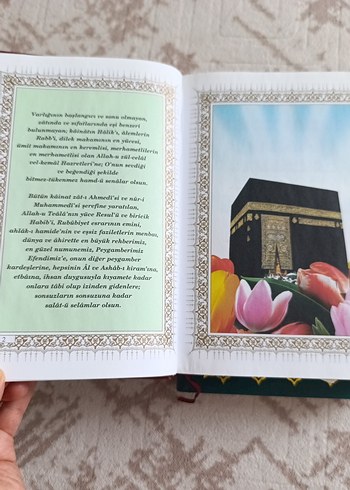 Varlığının başlangıcı ve sonu olmayan,
zâtında ve sıfatlarında eşi benzeri
bulunmayan; kâinatın Hâlik'ı, âlemlerin
Rabb'i, dilek makamının en yücesi,
ümit makamının en keremlisi, merhametlilerin
en merhametlisi olan Allah-u zül-celâl
vel-kemâl Hazretleri'ne; O'nun sevdiği
ve beğendiği şekilde
bitmez-tükenmez hamd-ü senâlar olsun.
Bütün kâinat zât-ı Ahmedî'si ve nûr-i
Muhammedî'si şerefine yaratılan,
Allah-u Teâlâ'nın yüce Resul'ü ve biricik
Habib'i, Rubûbiyet esrarının emini,
ahlâk-ı hamide'nin ve eşsiz faziletlerin menbaı,
dünya ve âhirette en büyük rehberimiz,
en güzel numunemiz, Peygamberimiz
Efendimiz'e, onun diğer peygamber
kardeşlerine, hepsinin Âl ve Ashâb-ı kiram'ına,
etbâına, ihsan duygusuyla kıyamete kadar
onlara tâbi olup izinden gidenlere;
sonsuzların sonsuzuna kadar
salât-ü selâmlar olsun.